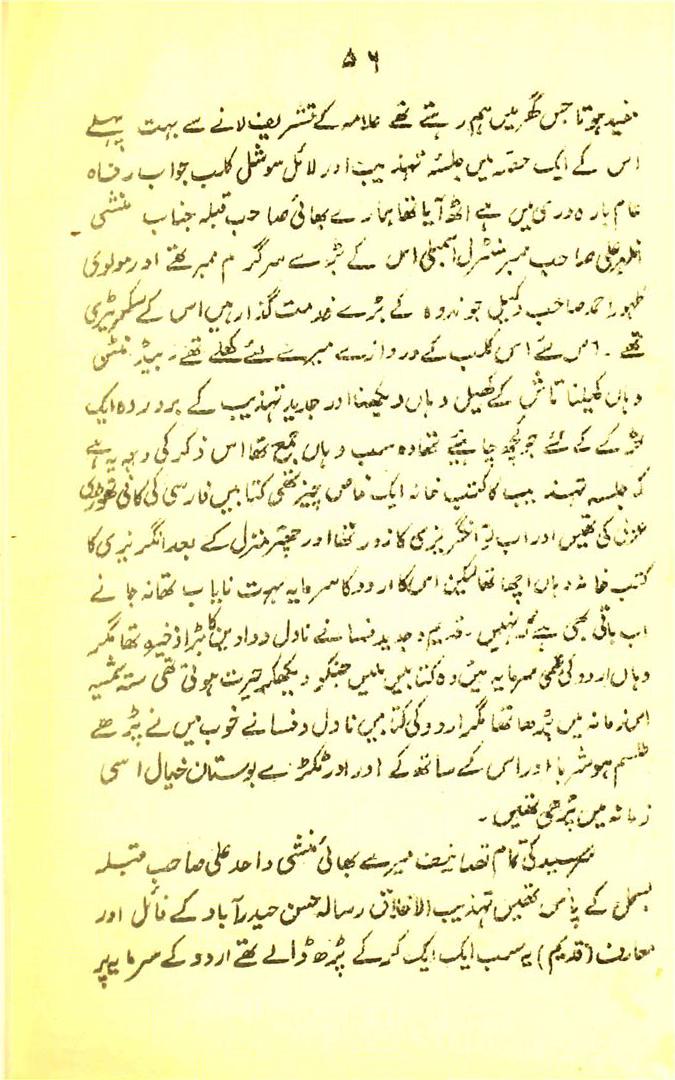 ۵۶
مفید ہوتا جس گھر میں ہم رہتے تھے علامہ کے تشریف لانے سے بہت پہلے
اس کے ایک حصہ میں جلسہ تہذیب اور لائل سوشل کلب جو اب رفاہ
عام بارہ دری میں ہے اٹھ آیا تھا ہمارے بھائی صاحب قبلہ جناب منشی
اظہر علی صاحب ممبر سنٹرل اسمبلی اس کے بڑے سرگرم ممبر تھے اور مولوی
ظہور احمد صاحب وکیل جو ندوہ کے بڑے خدمت گذار ہیں اس کے سکریٹری
تھے ۔ اس لئے اس کلب کے دروازے میرے لئے کھلے تھے ۔ بیڈ منٹن
وہاں کھیلنا تاش کے کھیل وہاں دیکھنا اور جدید تہذیب کے پروردہ ایک
لڑکے کے لئے جو کچھ چاہیئے تھا وہ سب وہاں جمع تھا اس ذکر کی وجہ یہ ہے
کہ جلسہ تہذیب کا کتب خانہ ایک خاص چیز تھی کتابیں فارسی کی کافی تھوڑی
عربی کی تھیں اور اب تو انگریزی کا زور تھا اور چھتر منزل کے بعد انگریزی کا
کتب خانہ وہاں اچھا تھا لیکن اس کا اردو کا سرمایہ بہت نایاب تھا نہ جانے
اب باقی بھی ہے کہ نہیں ۔ قدیم و جدید فسانے ناول دواوین کا بڑا ذخیرہ تھا مگر
وہاں اردو کی علمی سرمایہ میں وہ کتابیں ملیں جنکو دیکھکر حیرت ہوتی تھی ستہ شمسیہ
اس زمانہ میں پڑھا تھا مگر اردو کی کتابیں ناول و فسانے خوب میں نے پڑھے
طلسم ہوشربا اور اس کے ساتھ کے اور اور ٹکڑے بوستان خیال اسی
زمانہ میں پڑھی تھیں ۔
سرسید کی تمام تصانیف میرے بھائی منشی واحد علی صاحب قبلہ
بسمل کے پاس تھیں تہذیب الاخلاق رسالہ حسن حیدرآباد کے فائل اور
معارف (قدیم) یہ سب ایک ایک کر کے پڑھ ڈالے تھے اردو کے سرمایہ پر